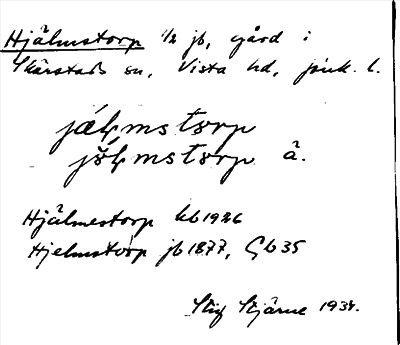 Hjälmstorp 1/2 jb, gård i
Skärstads sn, Vista hd, jönk. l.
jäłpmstorp
jölpmstorp å.
Hjälmestorp kb 1926
Hjelmstorp jb 1877, Gb 35
Stig Stjärne 1934.